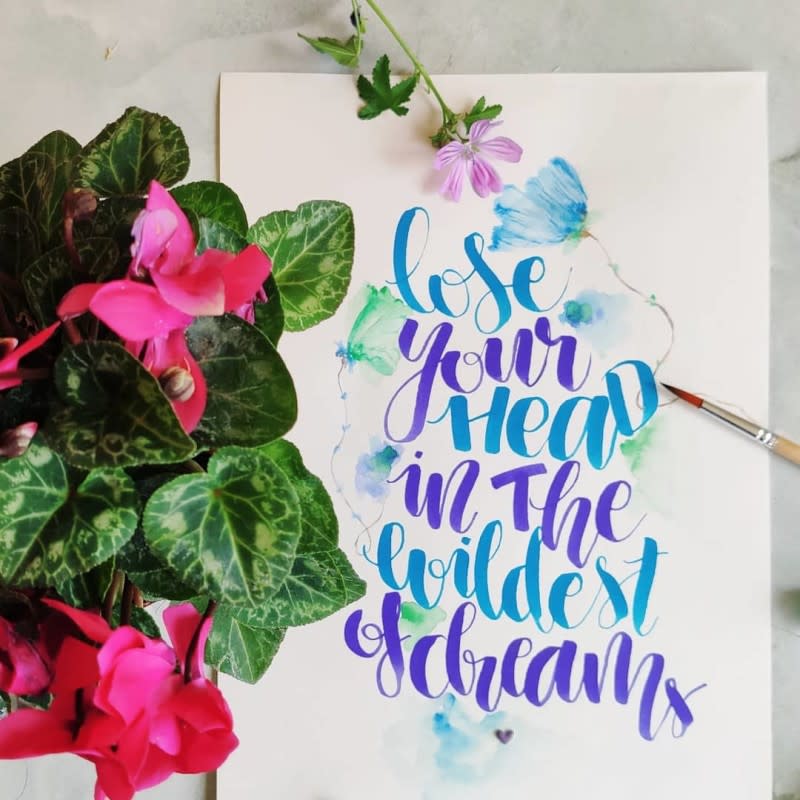 lose
your
HeaD
in The
wildest
of dreams